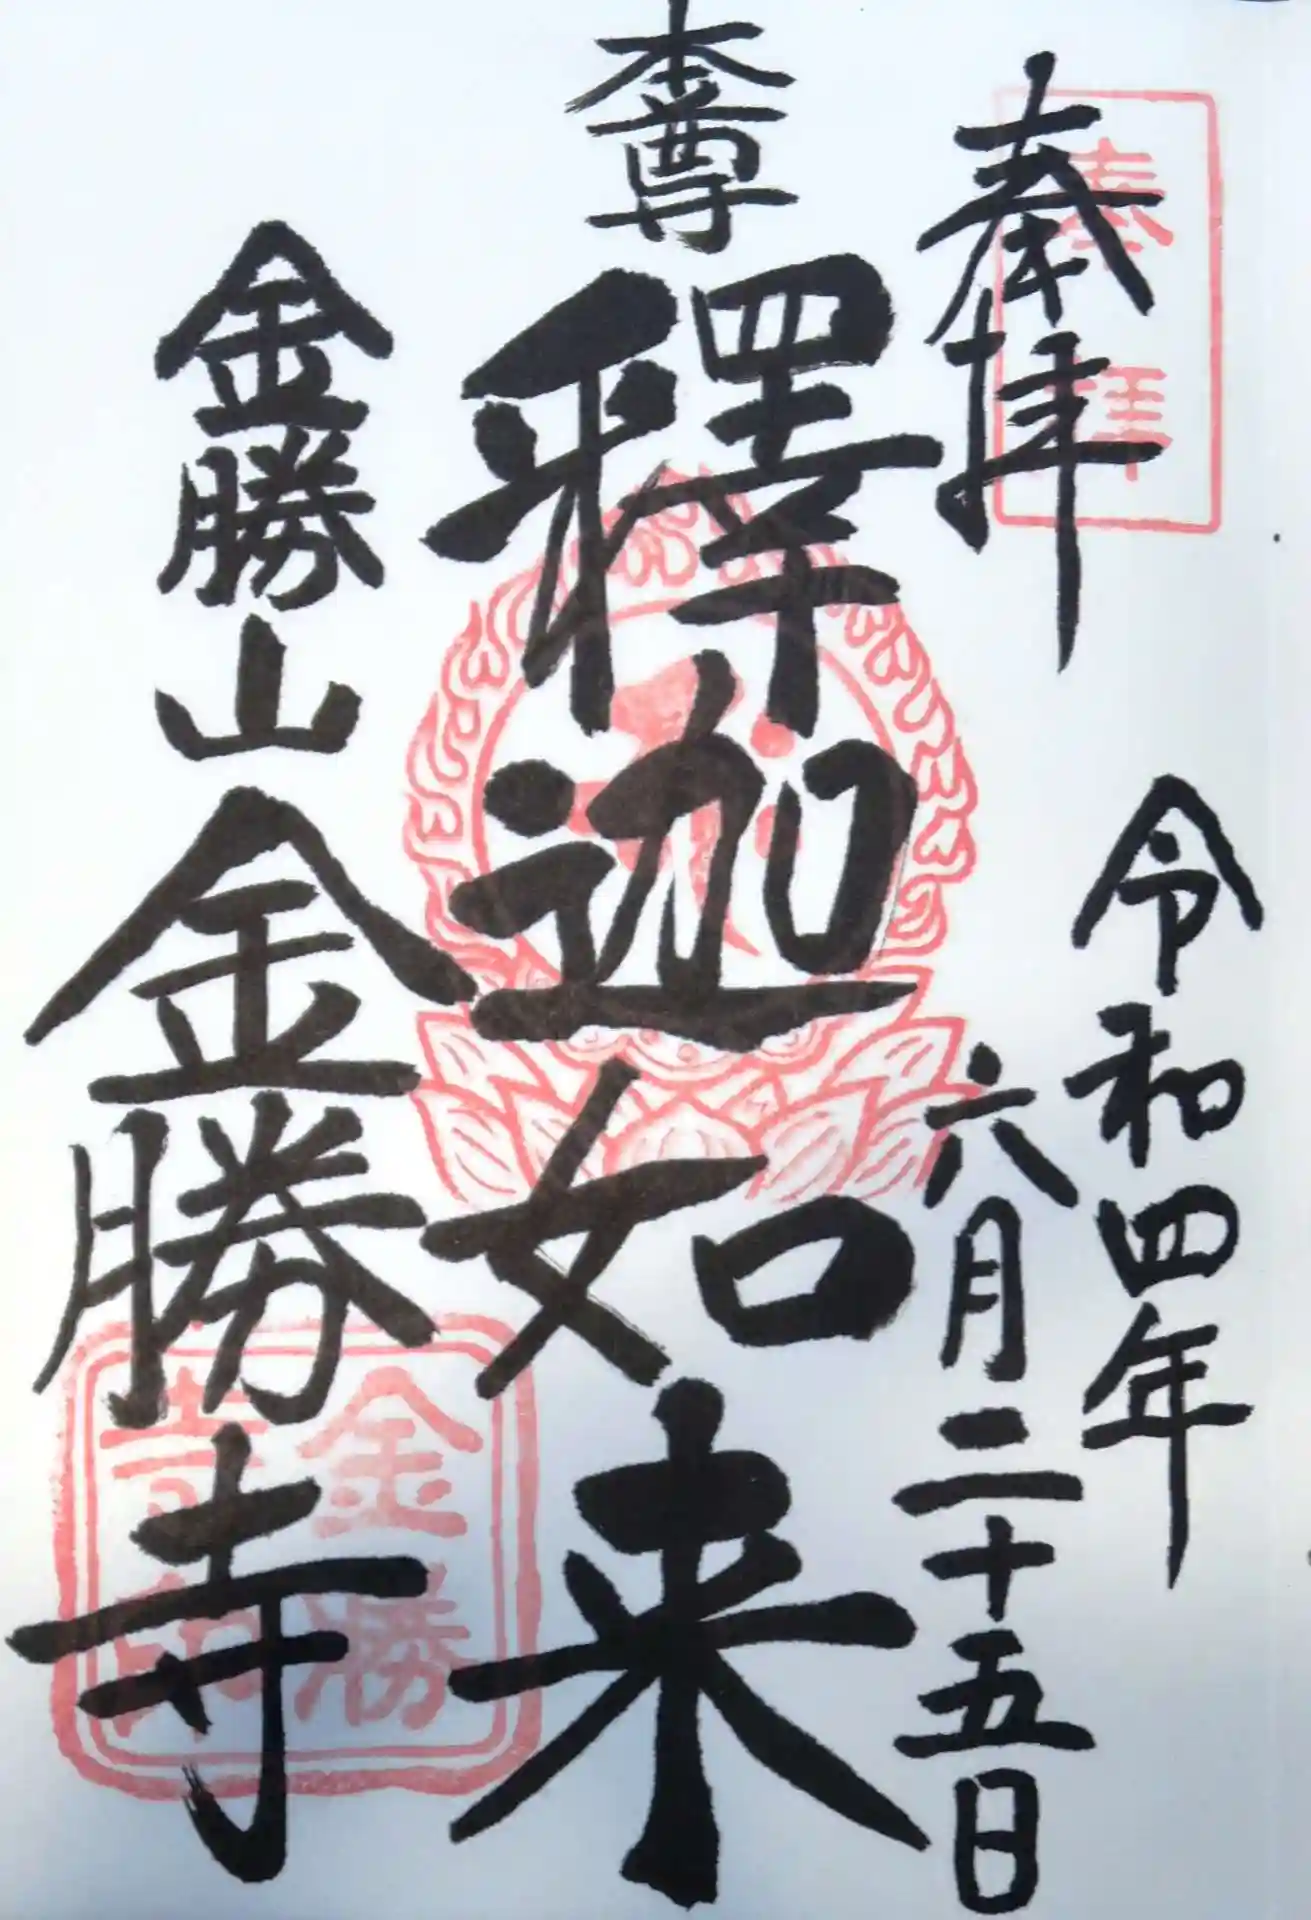 奉拝
奉拝
令和四年
六月二十五日
本尊
釋迦如来
金勝山
金勝寺
金勝
寺印